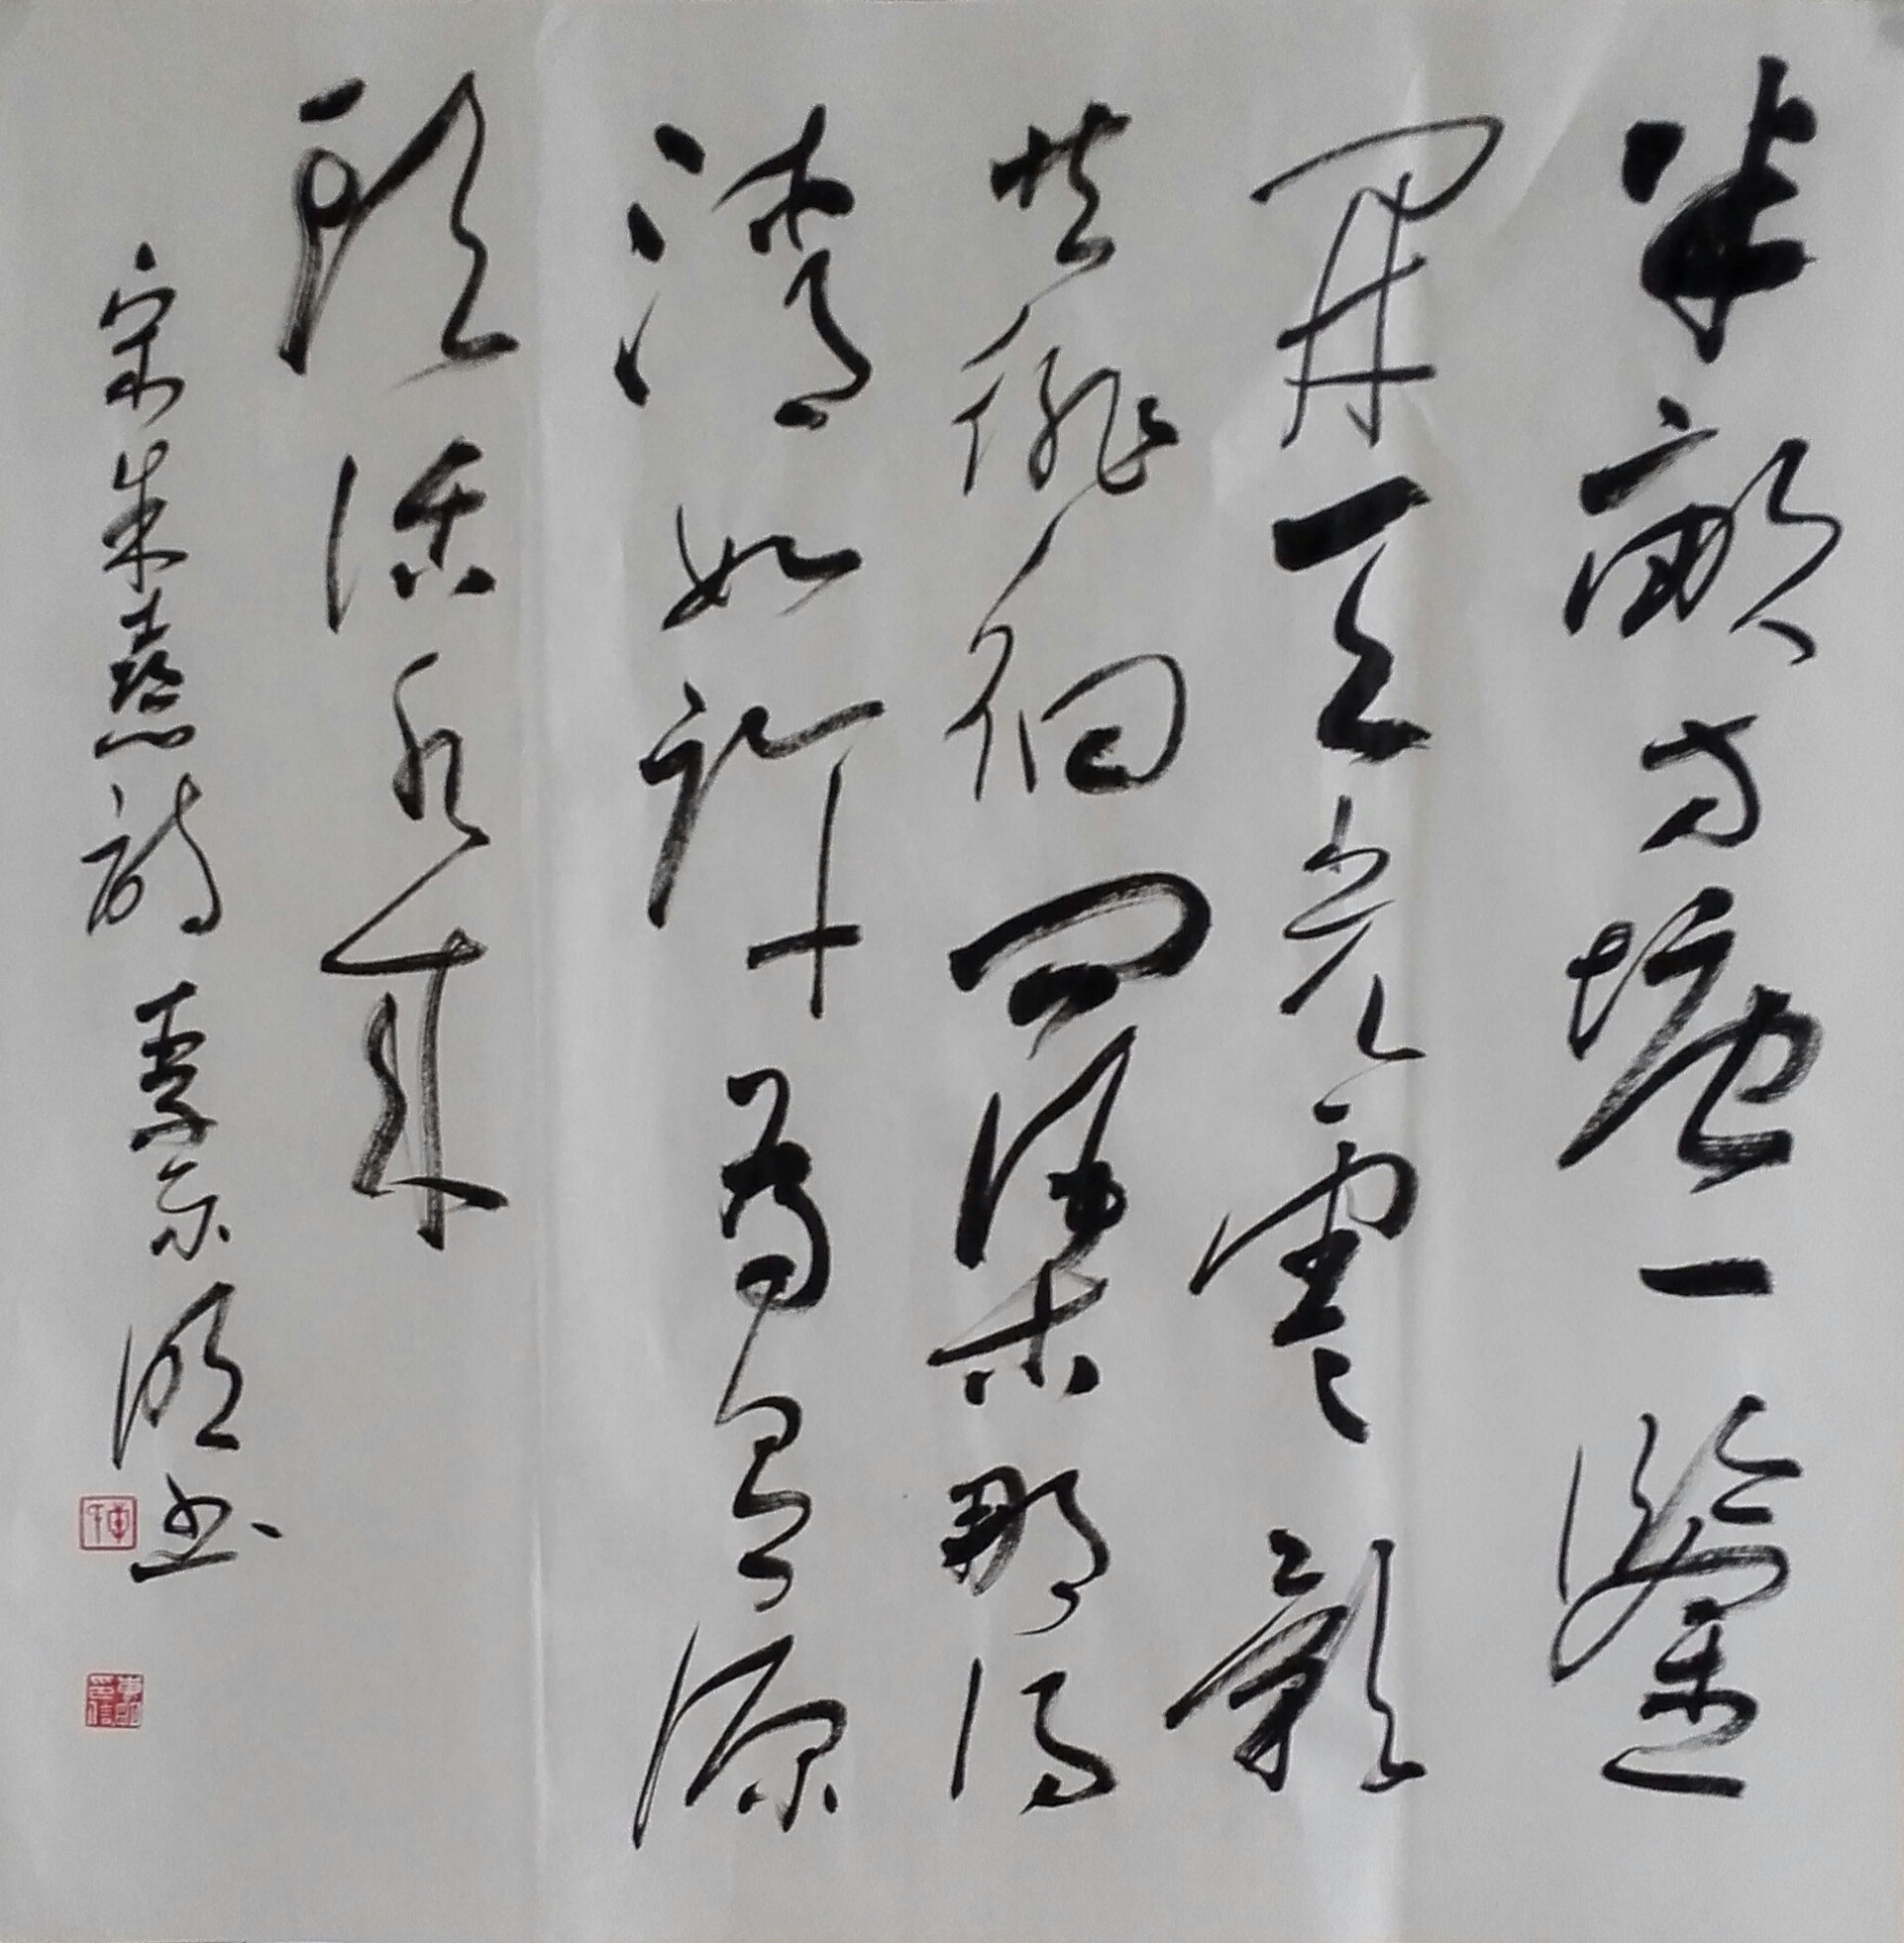 半畝方塘一鑒
開天光雲影
共徘徊問渠那得
清如許為有源
頭活水來
宋朱熹詩 李东明书